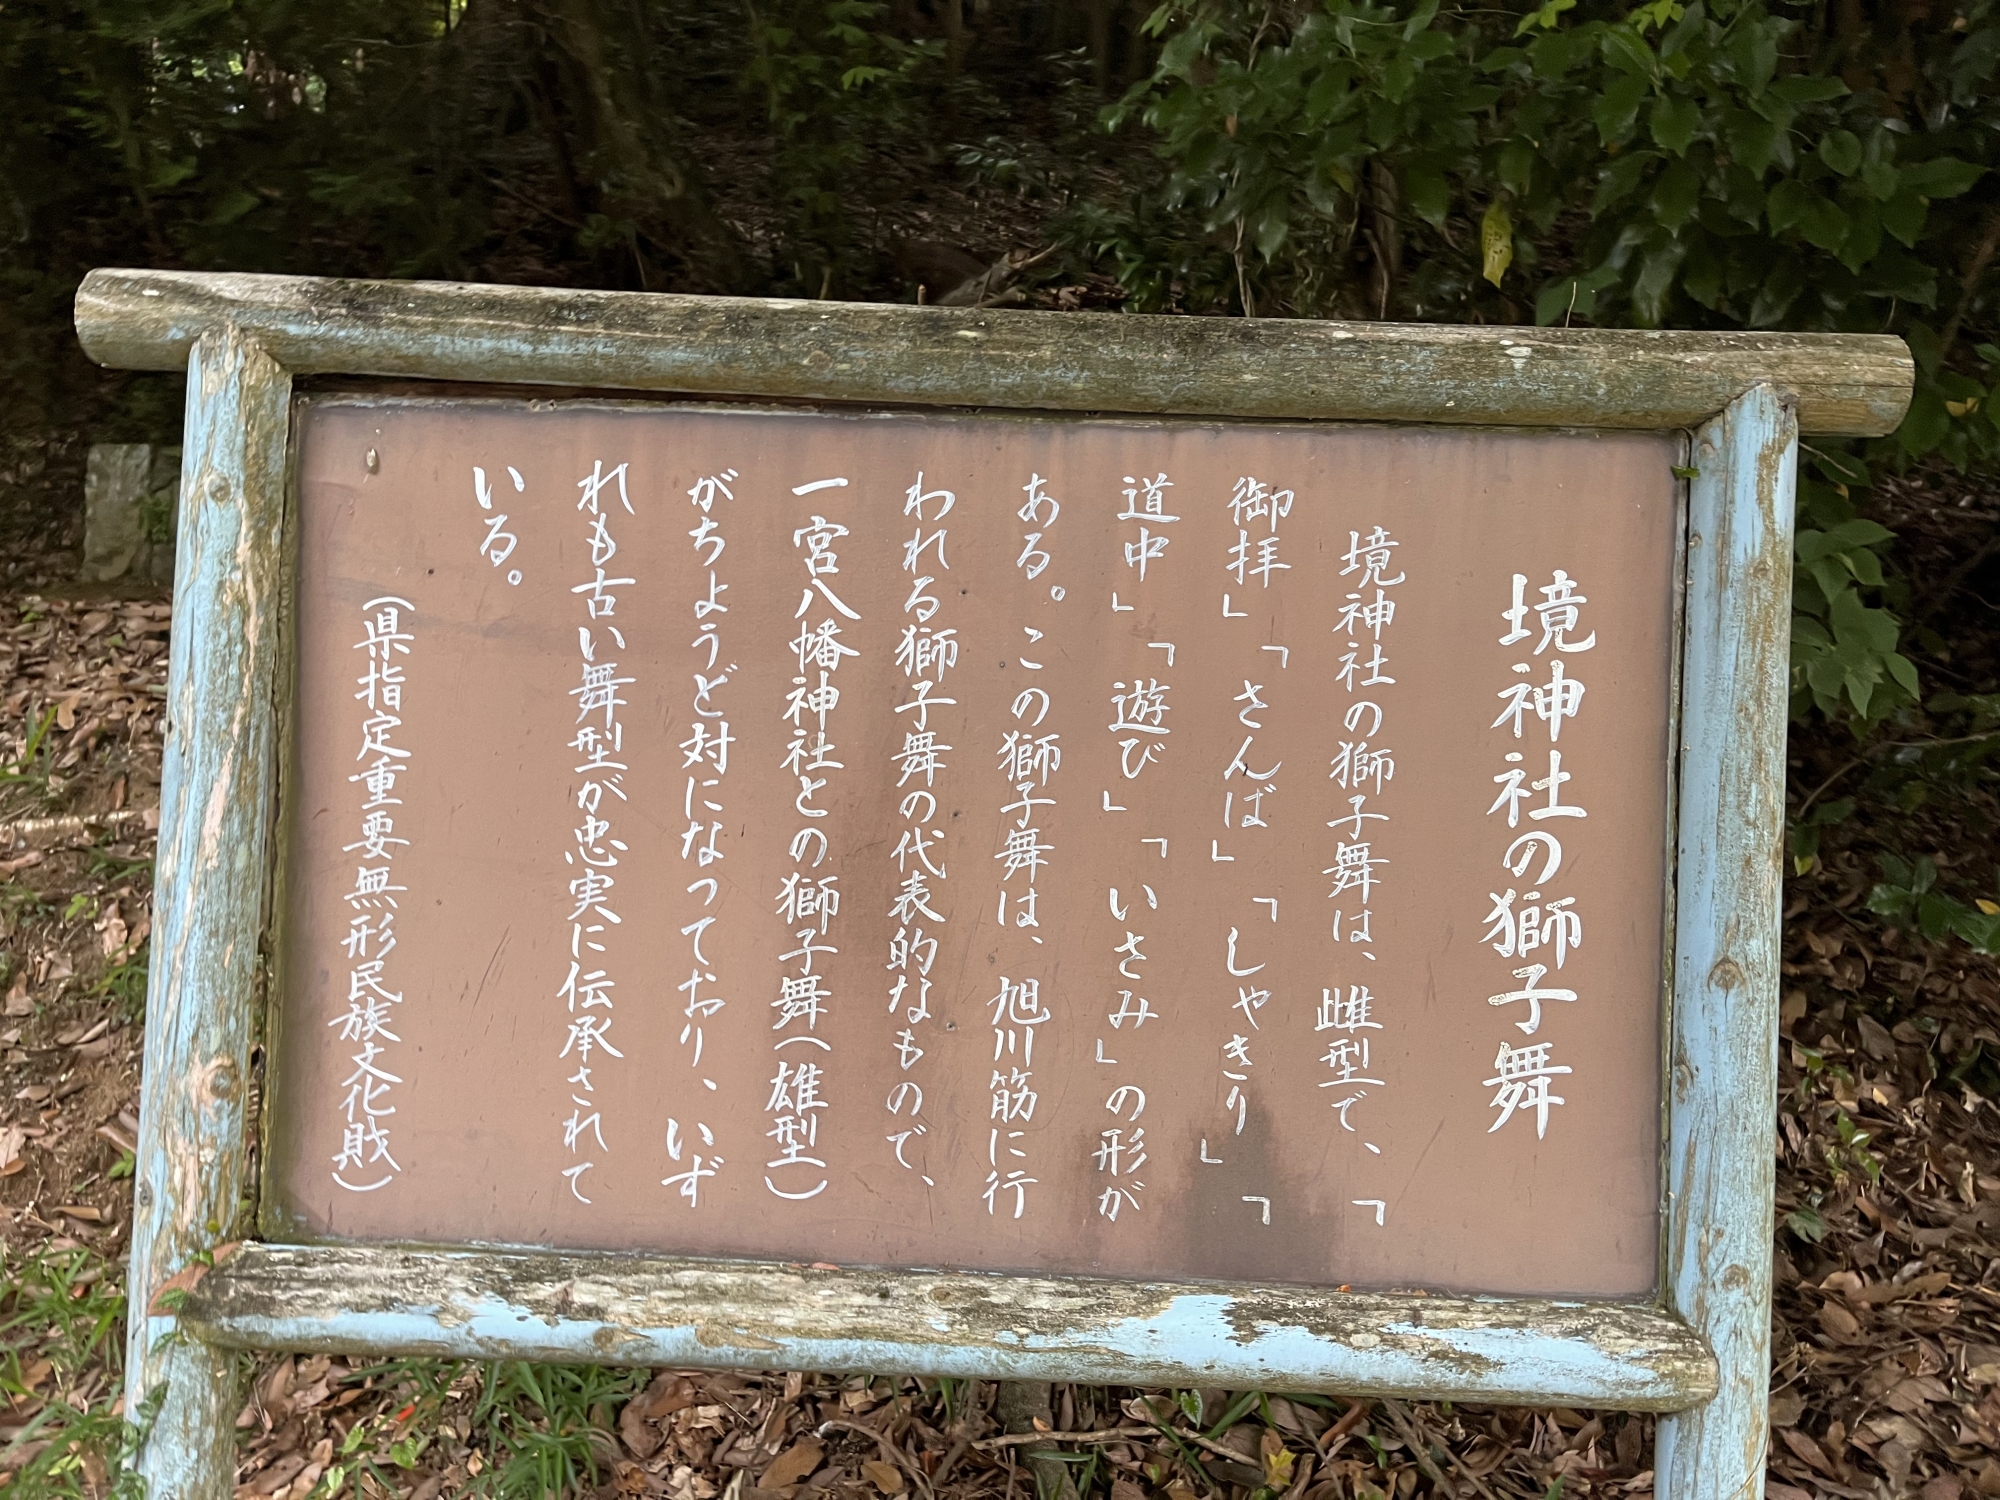 境神社の獅子舞
境神社の獅子舞は、雌型で、「
御拝」「さんば」「しやきり」「
道中」「遊び」「いさみ」の形が
ある。この獅子舞は、旭川筋に行
われる獅子舞の代表的なもので、
一宮八幡神社との獅子舞(雄型)
がちようど対になっており、いず
れも古い舞型が忠実に伝承されて
いる。
(県指定重要無形民族文化財)